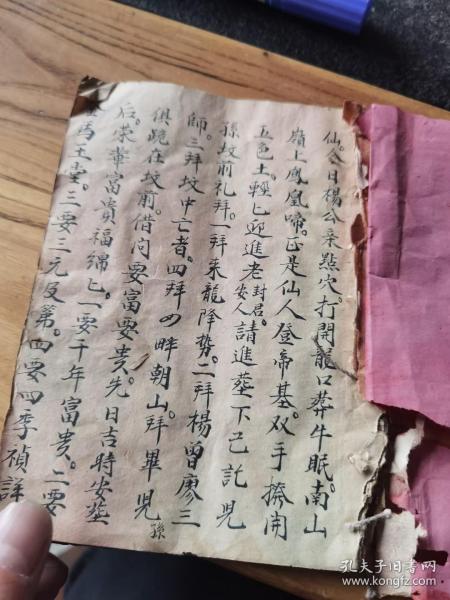 仙。今日楊公来點穴。打開龍口葬牛眠。南山
嶺上鳳凰啼。正是仙人登帝基。双手捹開
五色土。輕匕迎進老封君。安人請進塟下已託児
孫坟前礼拜。一拜来龍降勢。二拜楊曾廖三
師。三拜坟中亡者。四拜四畔朝山。拜畢児孫
俱跪在坟前。借问要富要贵。先日吉時安塟
后。荣華富貴福綿匕。一要千年富贵。二要
馬土堂。三要三元及第。四要四季禎詳
孔夫子旧书网
www.kongfz.com